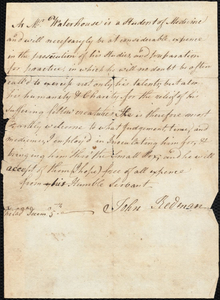 As Mr Waterhouse is a Student of Medicine
and will necessarily be at considerable expence
in the prosecution of his Studies and preparation
for practice in which he will no doubt be often
call'd to exercise not only his talents but also
his humanity & Charity for the relief of his
Suffering fellow creatures, he is therefore most
heartily welcome to what Judgement time, and
medicines I employ'd in Inoculating him for, &
bringing him thro the Small Pox; and he will
accept of them (I hope) free of all expence
from his Humble Servant.
John Redman